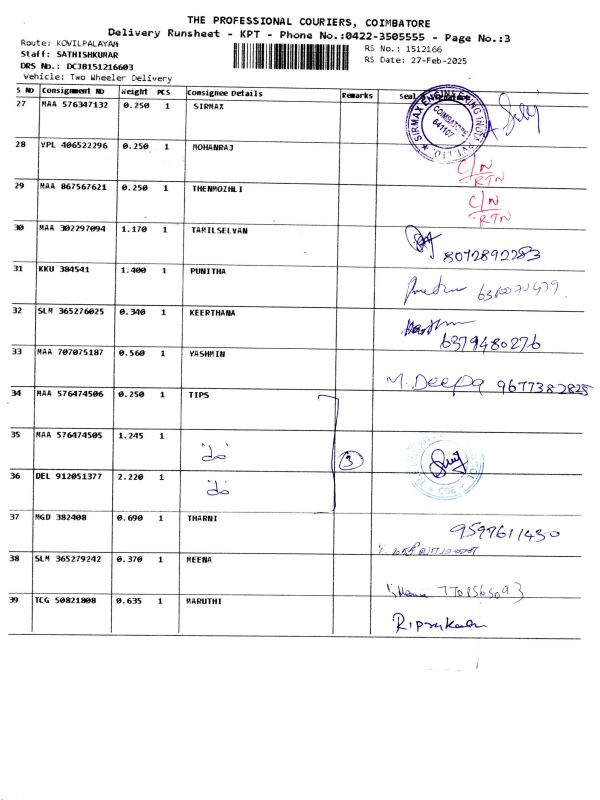 THE PROFESSIONAL COURIERS, COIMBATORE
Delivery Runsheet - KPT - Phone No.:0422-3505555 - Page No.:3
Route: KOVILPALAYAM
RS No.: 1512166
Staff: SATHISHKUMAR
RS Date: 27-Feb-2025
DRS No.: DCJB151216603
Vehicle: Two Wheeler Delivery
S NO Consignment No Weight PCS Consignee Details Remarks Seal
27 MAA 576347132 0.250 1 SIRMAX
SIRMAX ENGINEERING INDIA PVT. LTD. COIMBATORE 641107
28 VPL 406522296 0.250 1 MOHANRAJ C/N RTN
29 MAA 867567621 0.250 1 THENMOZHLI C/N RTN
30 MAA 302297094 1.170 1 TAMILSELVAN 8072892283
31 KKU 384541 1.400 1 PUNITHA
32 SLM 365276025 0.340 1 KEERTHANA 6379480276
33 MAA 707075187 0.560 1 YASHMIN M. Deepa 9677382825
34 MAA 576474506 0.250 1 TIPS
35 MAA 576474505 1.245 1 do 3
36 DEL 912051377 2.220 1 do
37 MGD 382408 0.690 1 THARNI 9597611430
38 SLM 365279242 0.370 1 MEENA
39 TCG 50821808 0.635 1 MARUTHI